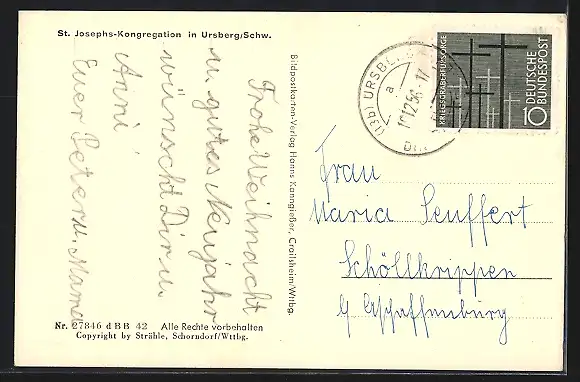 St. Josephs-Kongregation in Ursberg/Schw.
Frohe Weihnacht
u. gutes Neujahr
wünscht Dir u.
Anni
Euer Peter u. Mama
Nr. 27846 d BB 42 Alle Rechte vorbehalten
Copyright by Strähle, Schorndorf/Wttbg.
Bildpostkarten-Verlag Hanns Kanngießer, Crailsheim/Wttbg.
(13b) URSBE
a
KRIEGSGRÄBERFÜRSORGE
DEUTSCHE
BUNDESPOST
10
Frau
Maria Seuffert
Schöllkrippen
b/ Aschaffenburg